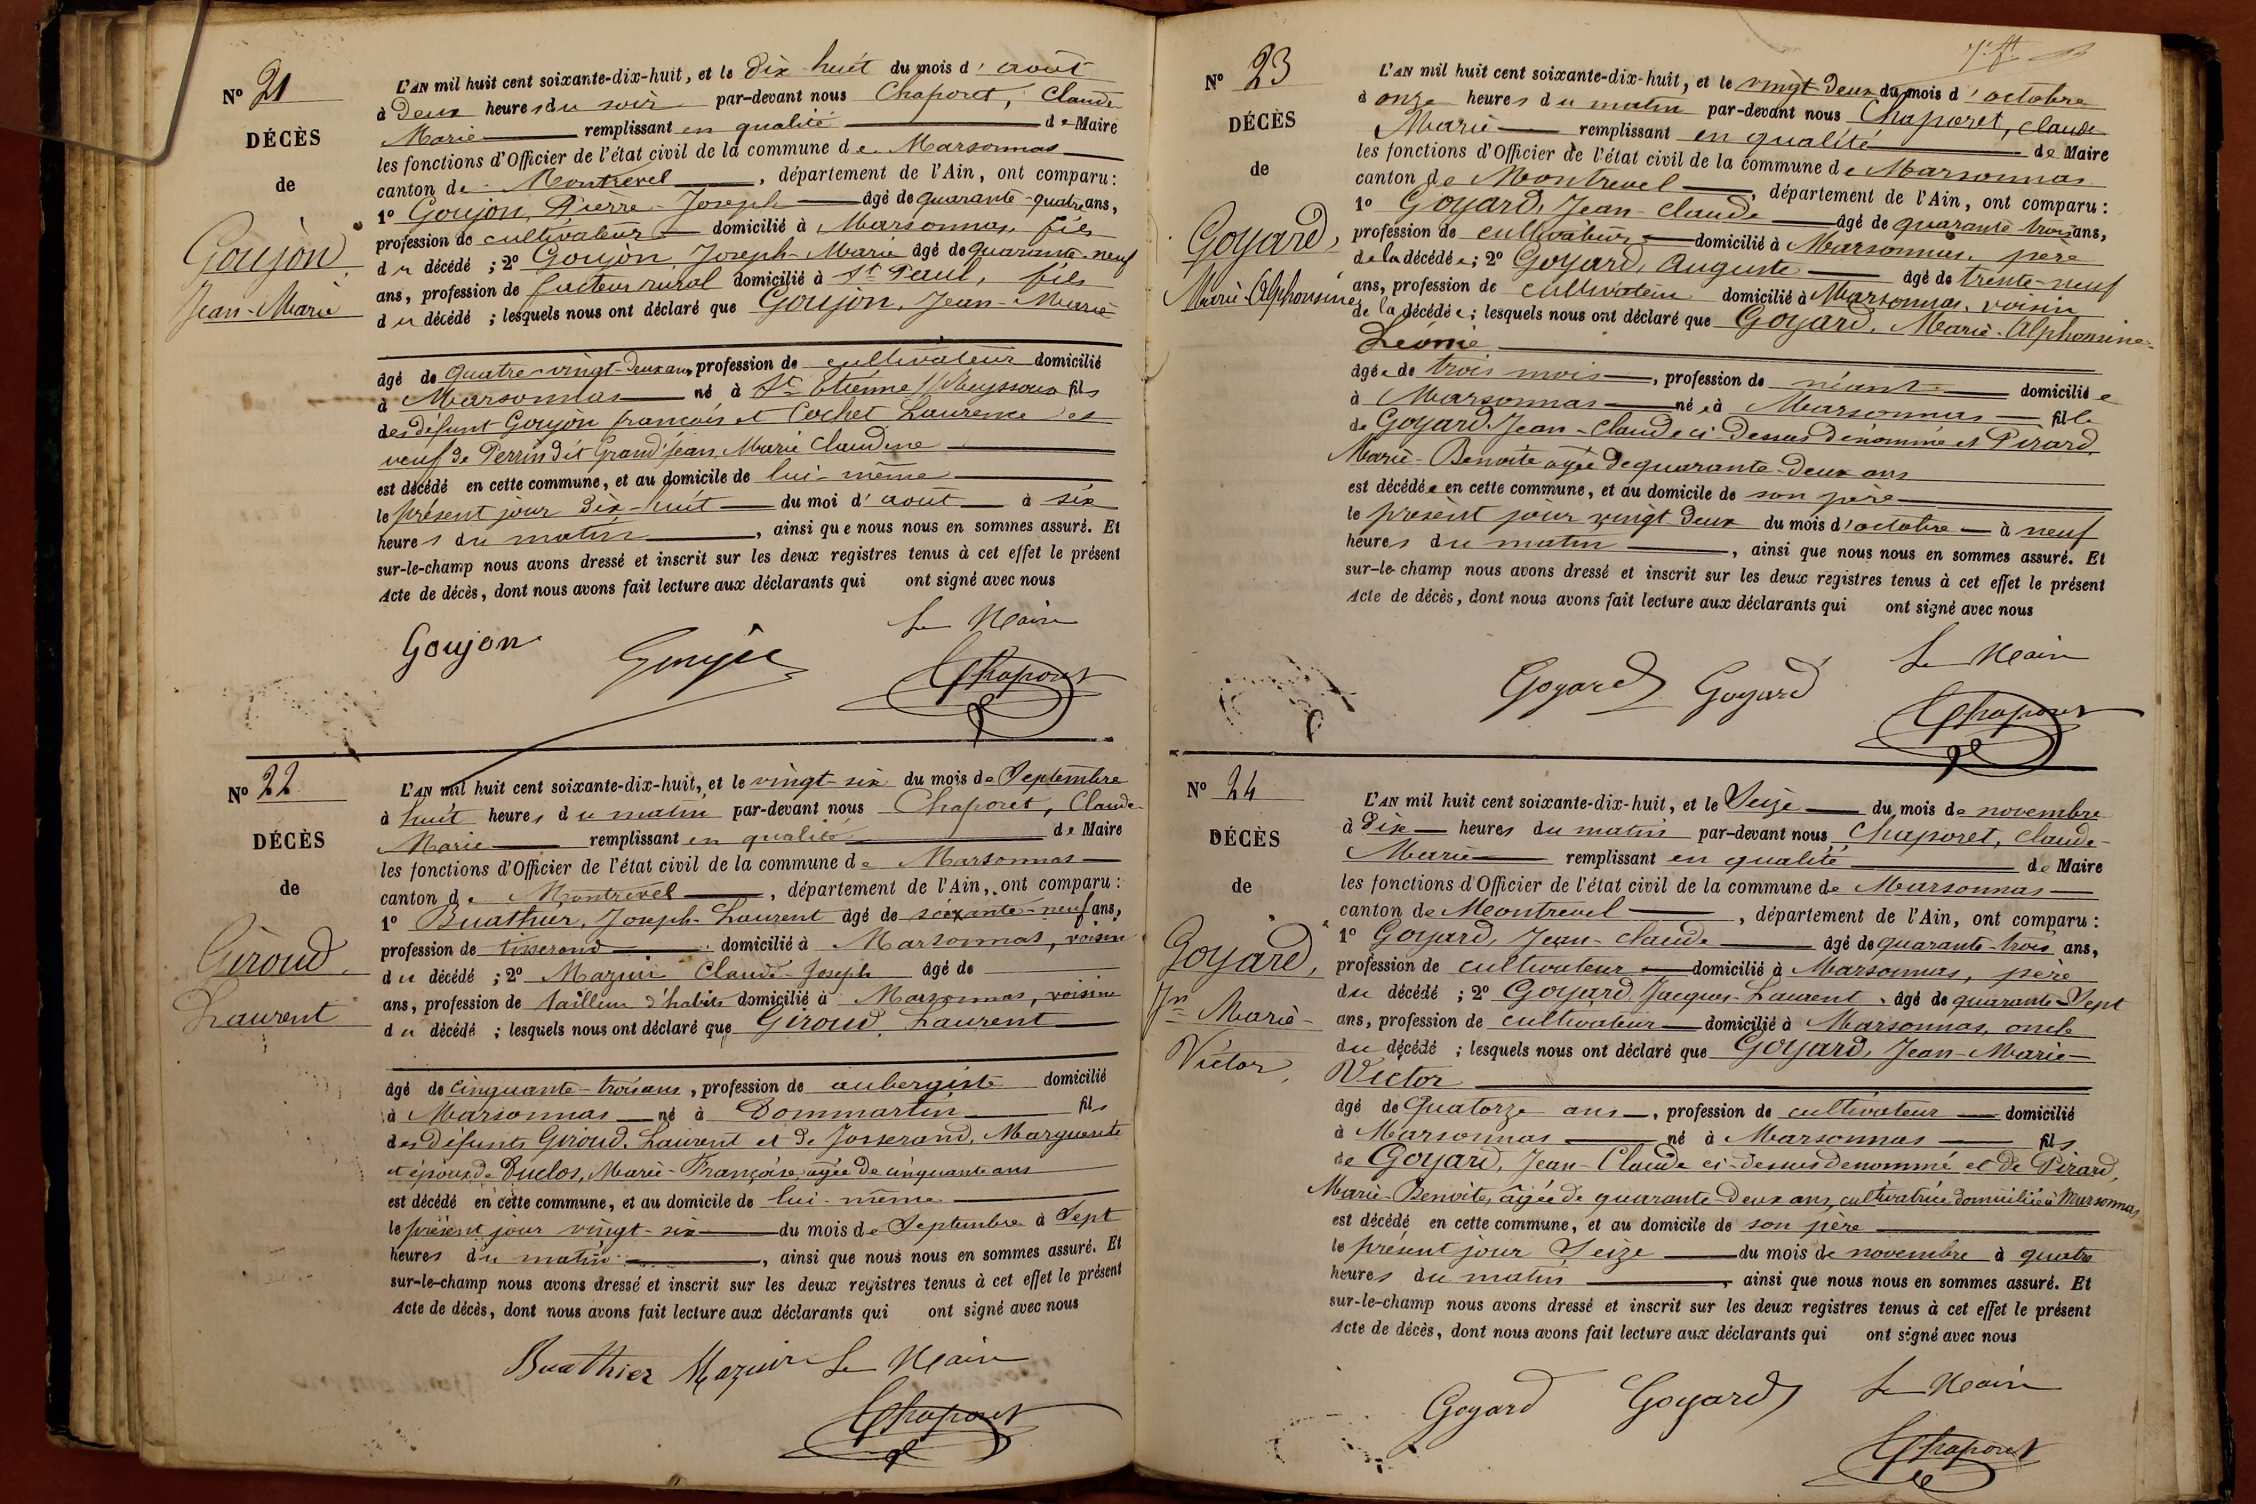 Nº 21
DÉCÈS
de
Goujon
Jean-Marie
L'AN mil huit cent soixante-dix-huit, et le dix huit du mois d'août
à deux heures du soir par-devant nous Chaporet, Claude
Marie remplissant en qualité de Maire
les fonctions d'Officier de l'état civil de la commune de Marsonnas
canton de Montrevel, département de l'Ain, ont comparu:
1º Goujon, Pierre-Joseph âgé de quarante-quatre ans,
profession de cultivateur domicilié à Marsonnas, fils
du décédé ; 2º Goujon, Joseph-Marie âgé de quarante-neuf
ans, profession de facteur rural domicilié à St Paul, fils
du décédé ; lesquels nous ont déclaré que Goujon, Jean-Marie
âgé de quatre-vingt-deux ans, profession de cultivateur domicilié
à Marsonnas né à St Etienne s/Reyssouze fils
des défunt Goujon françois et Cochet Laurence et
veuf de Perrin dit Grand'jean, Marie Claudine
est décédé en cette commune, et au domicile de lui-même
le présent jour dix-huit du moi d'août à six
heures du matin, ainsi que nous nous en sommes assuré. Et
sur-le-champ nous avons dressé et inscrit sur les deux registres tenus à cet effet le présent
Acte de décès, dont nous avons fait lecture aux déclarants qui ont signé avec nous
Le Maire
Goujon Goujon Chaporet
Nº 22
DÉCÈS
de
Giroud
Laurent
L'AN mil huit cent soixante-dix-huit, et le vingt-six du mois de Septembre
à huit heures du matin par-devant nous Chaporet, Claude
Marie remplissant en qualité de Maire
les fonctions d'Officier de l'état civil de la commune de Marsonnas
canton de Montrevel, département de l'Ain, ont comparu:
1º Buathier, Joseph-Laurent âgé de soixante-neuf ans,
profession de tisserand domicilié à Marsonnas, voisin
du décédé ; 2º Mazuir Claude-Joseph âgé de
ans, profession de tailleur d'habits domicilié à Marsonnas, voisin
du décédé ; lesquels nous ont déclaré que Giroud Laurent
âgé de cinquante-trois ans, profession de aubergiste domicilié
à Marsonnas né à Dommartin fils
des défunts Giroud, Laurent et de Josserand, Marguerite
et époux de Duclos, Marie-Françoise, agée de cinquante ans
est décédé en cette commune, et au domicile de lui-même
le présent jour vingt-six du mois de Septembre à Sept
heures du matin, ainsi que nous nous en sommes assuré. Et
sur-le-champ nous avons dressé et inscrit sur les deux registres tenus à cet effet le présent
Acte de décès, dont nous avons fait lecture aux déclarants qui ont signé avec nous
Buathier Mazuir Le Maire
Chaporet
Nº 23
DÉCÈS
de
Goyard,
Marie-Alphonsine
L'AN mil huit cent soixante-dix-huit, et le vingt deux du mois d'octobre
à onze heures du matin par-devant nous Chaporet, Claude
Marie remplissant en qualité de Maire
les fonctions d'Officier de l'état civil de la commune de Marsonnas
canton de Montrevel, département de l'Ain, ont comparu:
1º Goyard, Jean-Claude âgé de quarante trois ans,
profession de cultivateur domicilié à Marsonnas, père
de la décédée ; 2º Goyard, Auguste âgé de trente-neuf
ans, profession de cultivateur domicilié à Marsonnas, voisin
de la décédée ; lesquels nous ont déclaré que Goyard, Marie-Alphonsine-
Léonie
âgée de trois mois, profession de néant domiciliée
à Marsonnas née à Marsonnas fille
de Goyard, Jean-Claude ci-dessus dénommé et Pirard
Marie-Benoite agée de quarante-deux ans
est décédée en cette commune, et au domicile de son père
le présent jour vingt-deux du mois d'octobre à neuf
heures du matin, ainsi que nous nous en sommes assuré. Et
sur-le-champ nous avons dressé et inscrit sur les deux registres tenus à cet effet le présent
Acte de décès, dont nous avons fait lecture aux déclarants qui ont signé avec nous
Le Maire
Goyard Goyard Chaporet
Nº 24
DÉCÈS
de
Goyard,
Jn Marie-
Victor
L'AN mil huit cent soixante-dix-huit, et le Seize du mois de novembre
à dix heures du matin par-devant nous Chaporet, Claude-
Marie remplissant en qualité de Maire
les fonctions d'Officier de l'état civil de la commune de Marsonnas
canton de Montrevel, département de l'Ain, ont comparu:
1º Goyard, Jean-Claude âgé de quarante-trois ans,
profession de cultivateur domicilié à Marsonnas, père
du décédé ; 2º Goyard Jacques-Laurent âgé de quarante-Sept
ans, profession de cultivateur domicilié à Marsonnas, oncle
du décédé ; lesquels nous ont déclaré que Goyard, Jean-Marie-
Victor
âgé de Quatorze ans, profession de cultivateur domicilié
à Marsonnas né à Marsonnas fils
de Goyard, Jean-Claude ci-dessus denommé et de Pirard,
Marie-Benoite, âgée de quarante-deux ans, cultivatrice domiciliée à Marsonnas
est décédé en cette commune, et au domicile de son père
le présent jour Seize du mois de novembre à quatre
heures du matin, ainsi que nous nous en sommes assuré. Et
sur-le-champ nous avons dressé et inscrit sur les deux registres tenus à cet effet le présent
Acte de décès, dont nous avons fait lecture aux déclarants qui ont signé avec nous
Goyard Goyard Le Maire
Chaporet